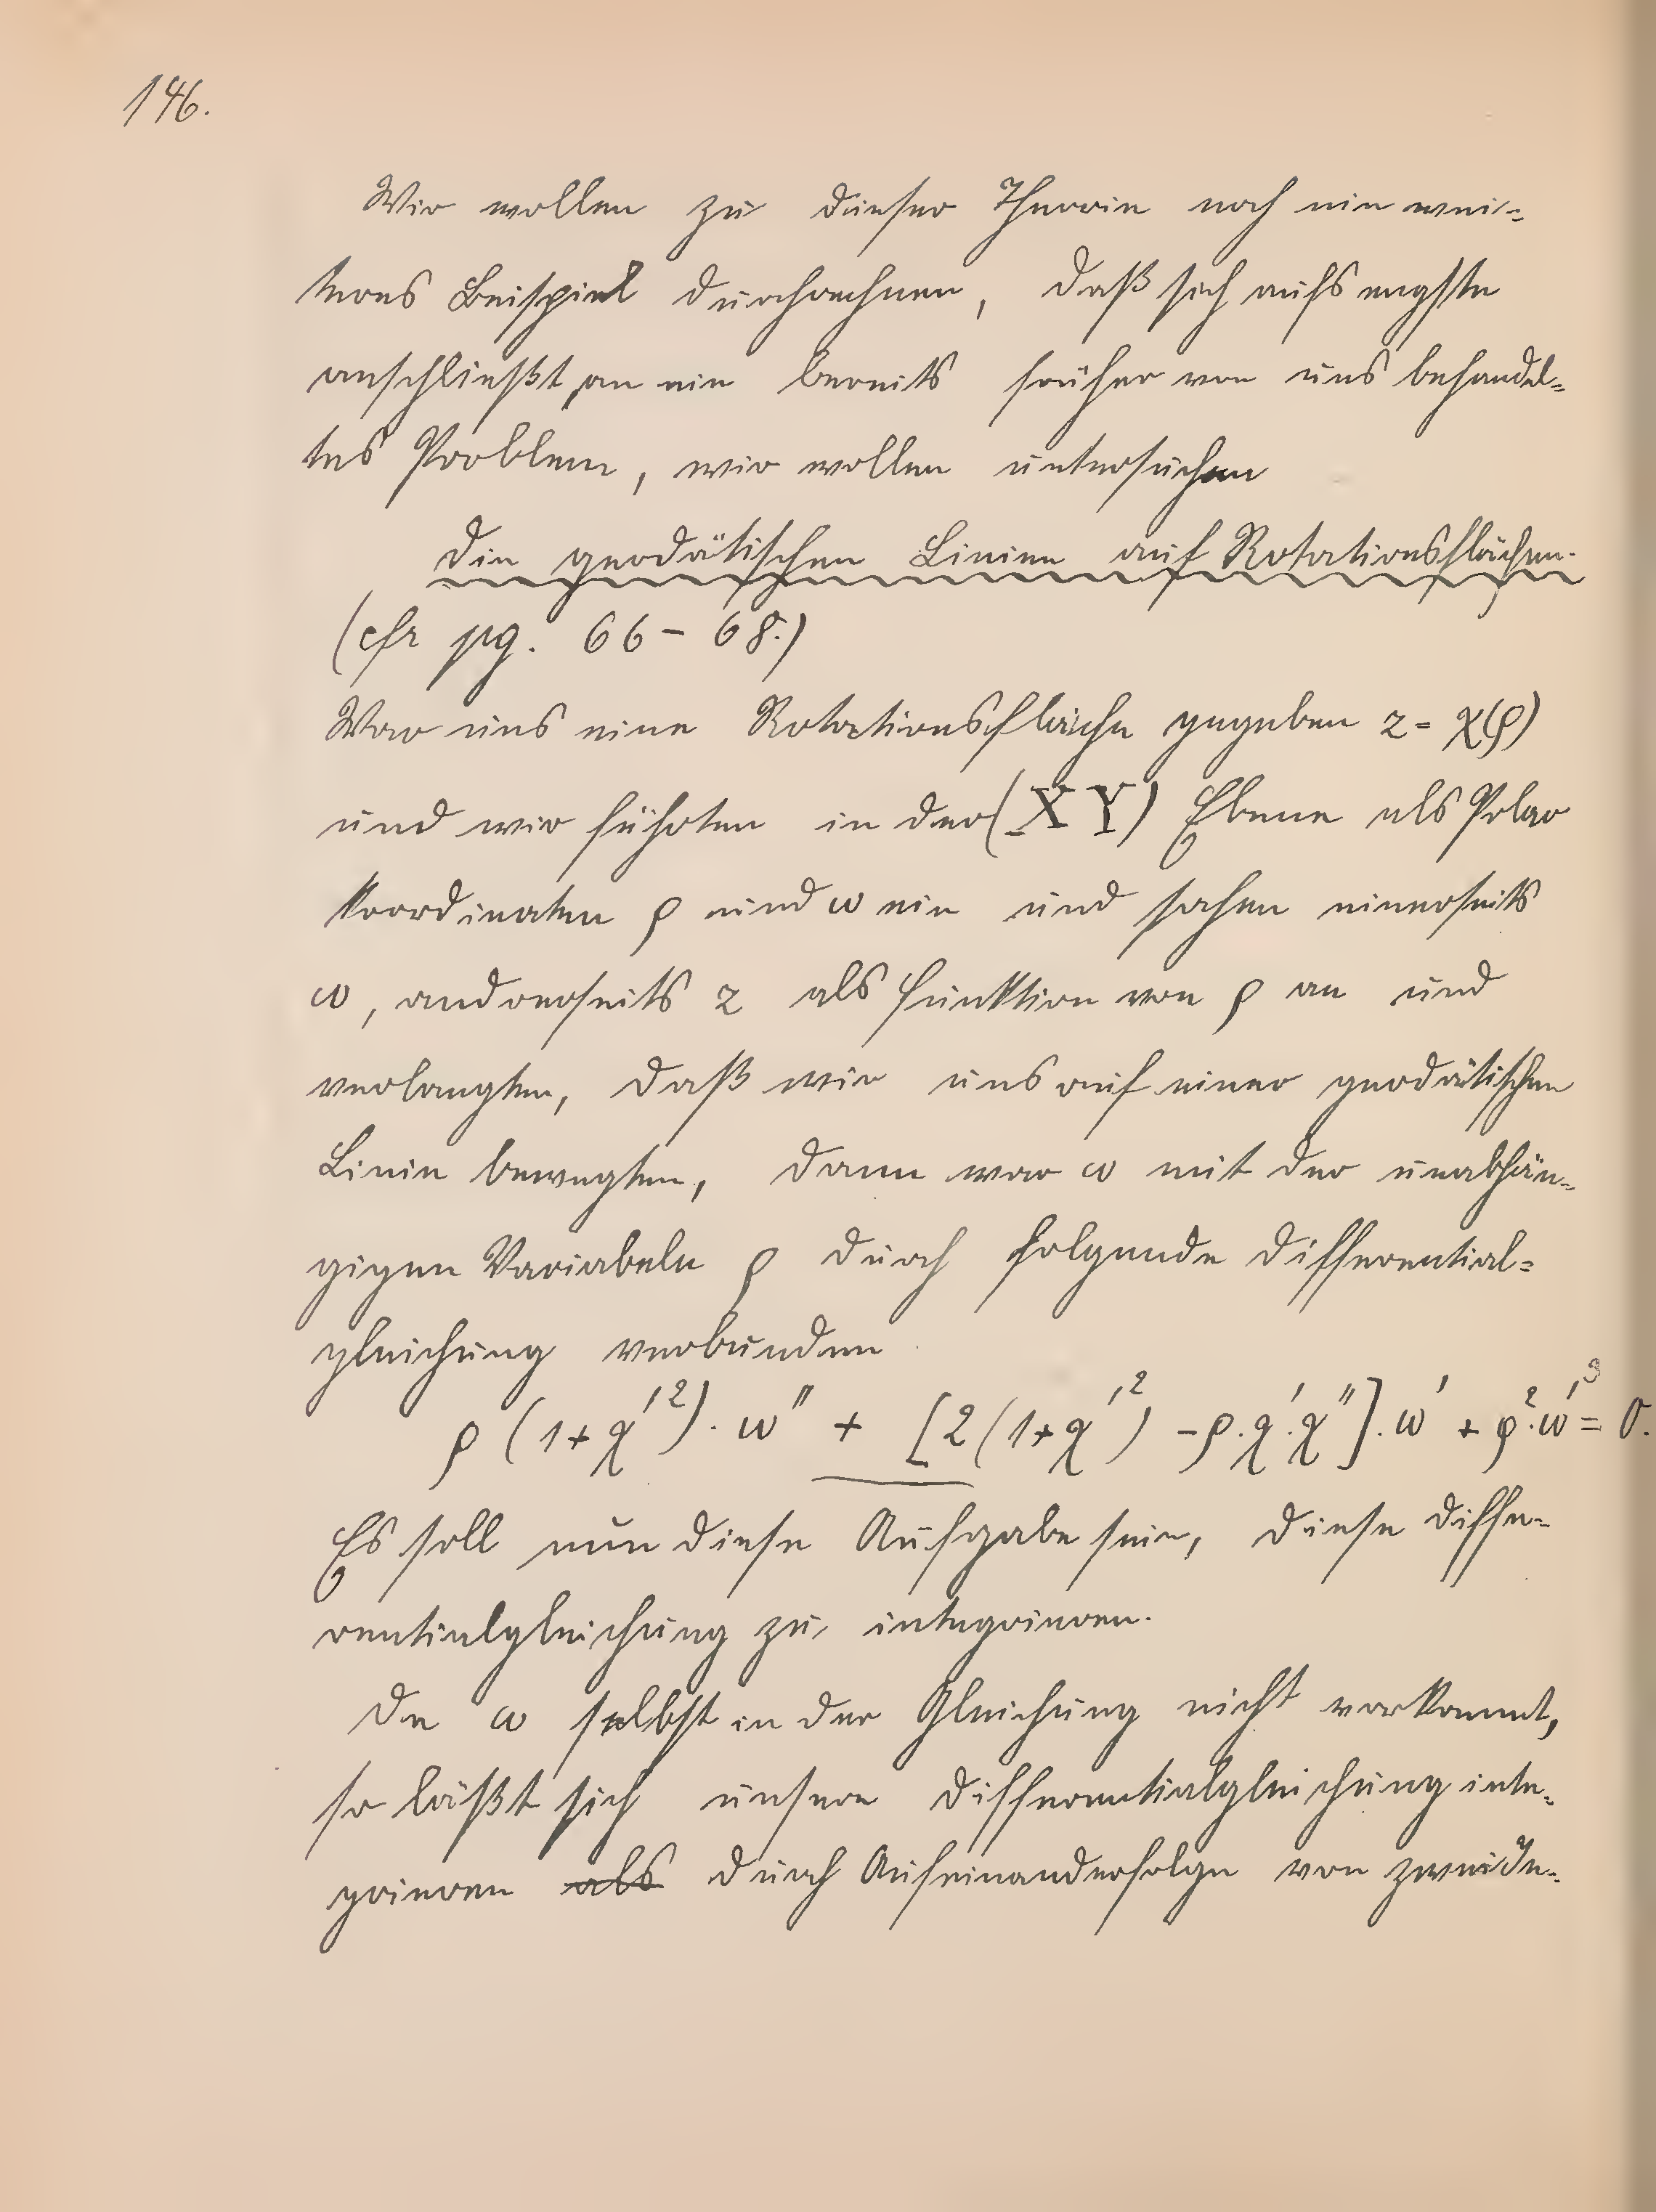 146.
Wir wollen zu dieser Theorie noch ein wei-
teres Beispiel durchrechnen, daß sich aufs engste
anschließt an ein bereits früher von uns behandel-
tes Problem, wir wollen untersuchen
die geodätischen Linien auf Rotationsflächen.
(cfr pg. 66 - 68.)
War uns eine Rotationsfläche gegeben z = χ(ρ)
und wir führten in der (XY) Ebene als Polar
koordinaten ρ und ω ein und sahen einerseits
ω, andererseits z als Funktion von ρ an und
verlangten, daß wir uns auf einer geodätischen
Linie bewegten, dann war ω mit der unabhän-
gigen Variabeln ρ durch folgende Differential-
gleichung verbunden
ρ (1+χ'²) · ω'' + [2(1+χ'²) - ρ·χ'·χ'']·ω' + ρ²·ω'³ = 0.
Es soll nun diese Aufgabe sein, diese Diffe-
rentialgleichung zu integrieren.
Da ω selbst in der Gleichung nicht vorkommt,
so läßt sich unsere Differentialgleichung inte-
grieren als durch Aufeinanderfolge von zwei In-